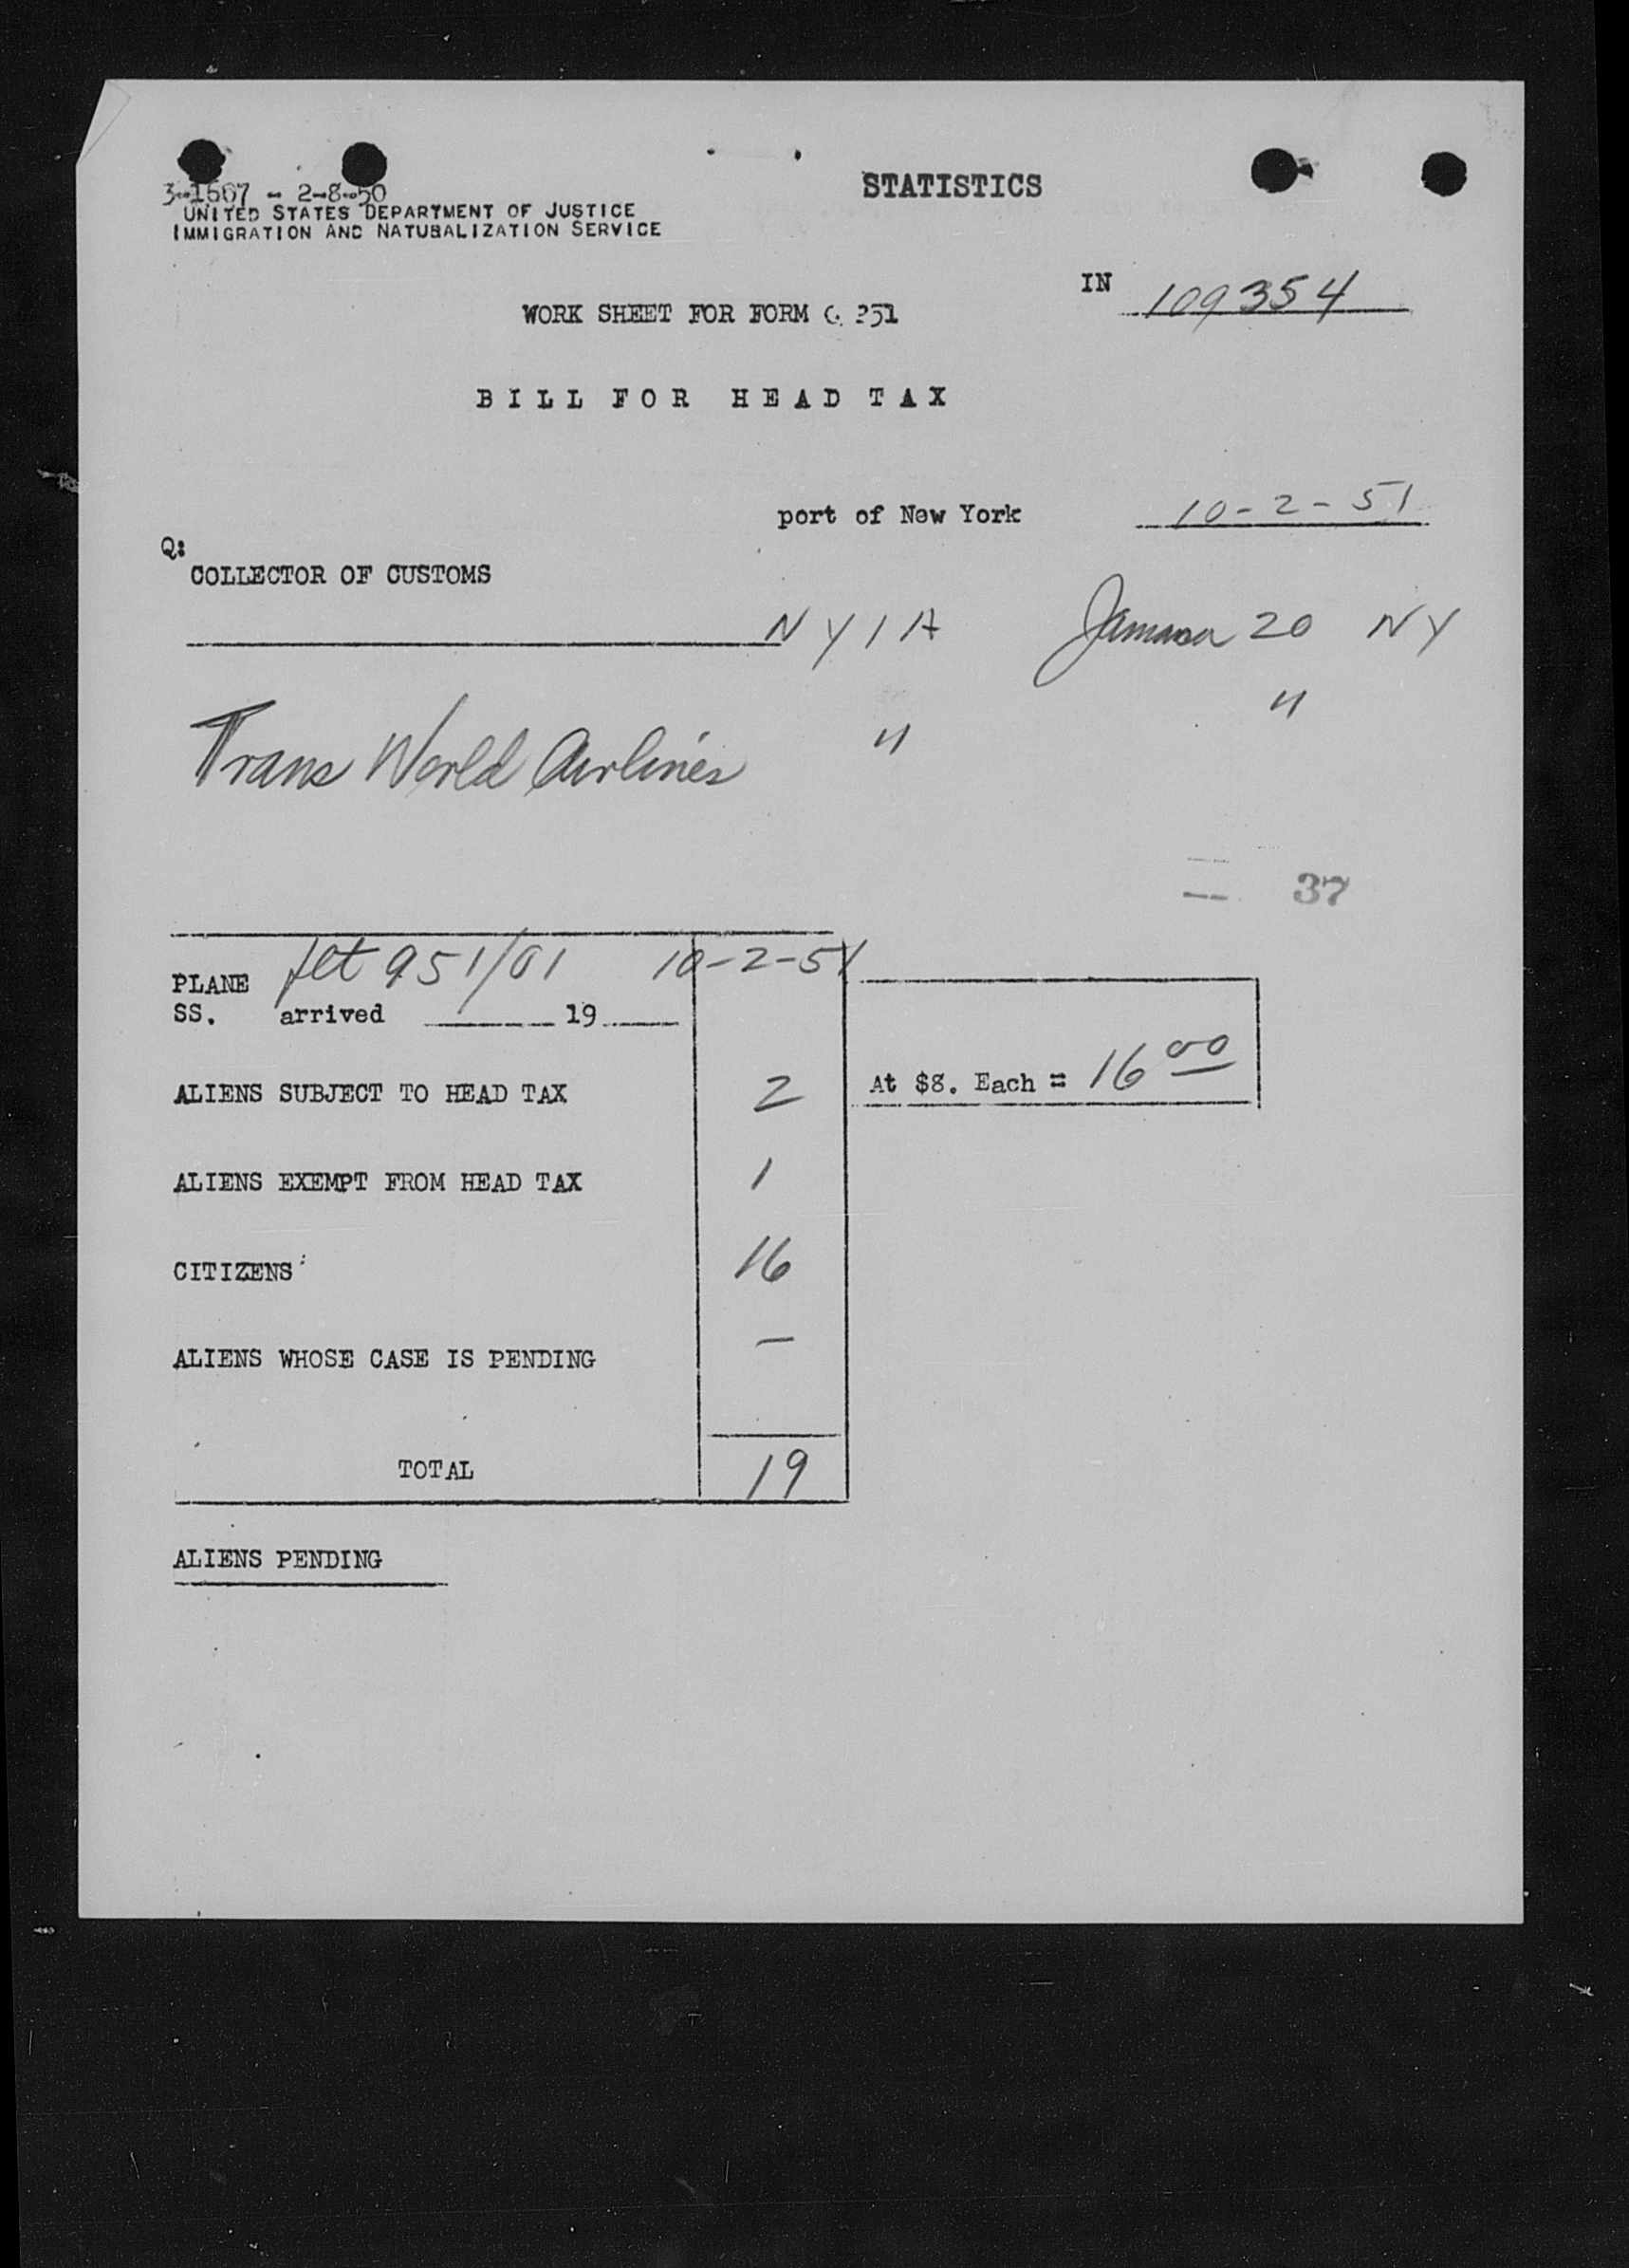 STATISTICS
3-1567 - 2-8-50
UNITED STATES DEPARTMENT OF JUSTICE
IMMIGRATION AND NATURALIZATION SERVICE
IN 109354
WORK SHEET FOR FORM G 251
BILL FOR HEAD TAX
port of New York 10-2-51
Q:
COLLECTOR OF CUSTOMS
NYIA Jamaica 20 NY
Trans World Airlines " "
37
PLANE flt 951/01 10-2-51
SS. arrived 19
ALIENS SUBJECT TO HEAD TAX 2 At $8. Each = 16 00
ALIENS EXEMPT FROM HEAD TAX 1
CITIZENS 16
ALIENS WHOSE CASE IS PENDING —
TOTAL 19
ALIENS PENDING